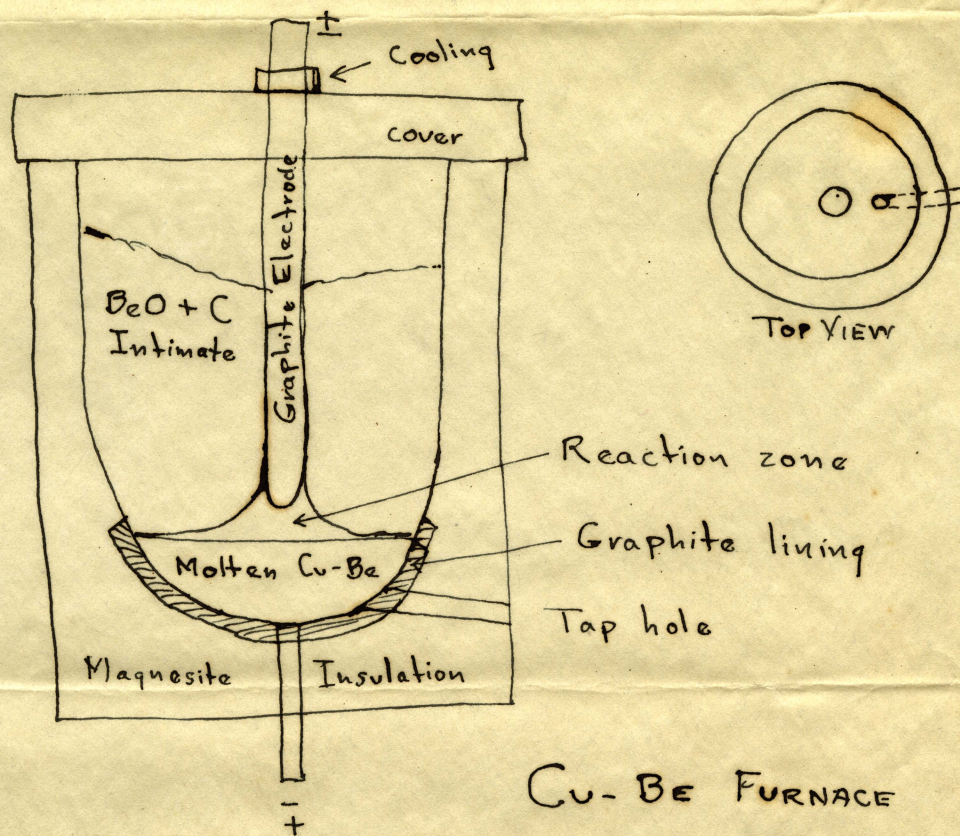 ±
Cooling
cover
Graphite Electrode
BeO + C
Intimate
TOP VIEW
Reaction zone
Graphite lining
Molten Cu-Be
Tap hole
Magnesite Insulation
∓
CU-BE FURNACE